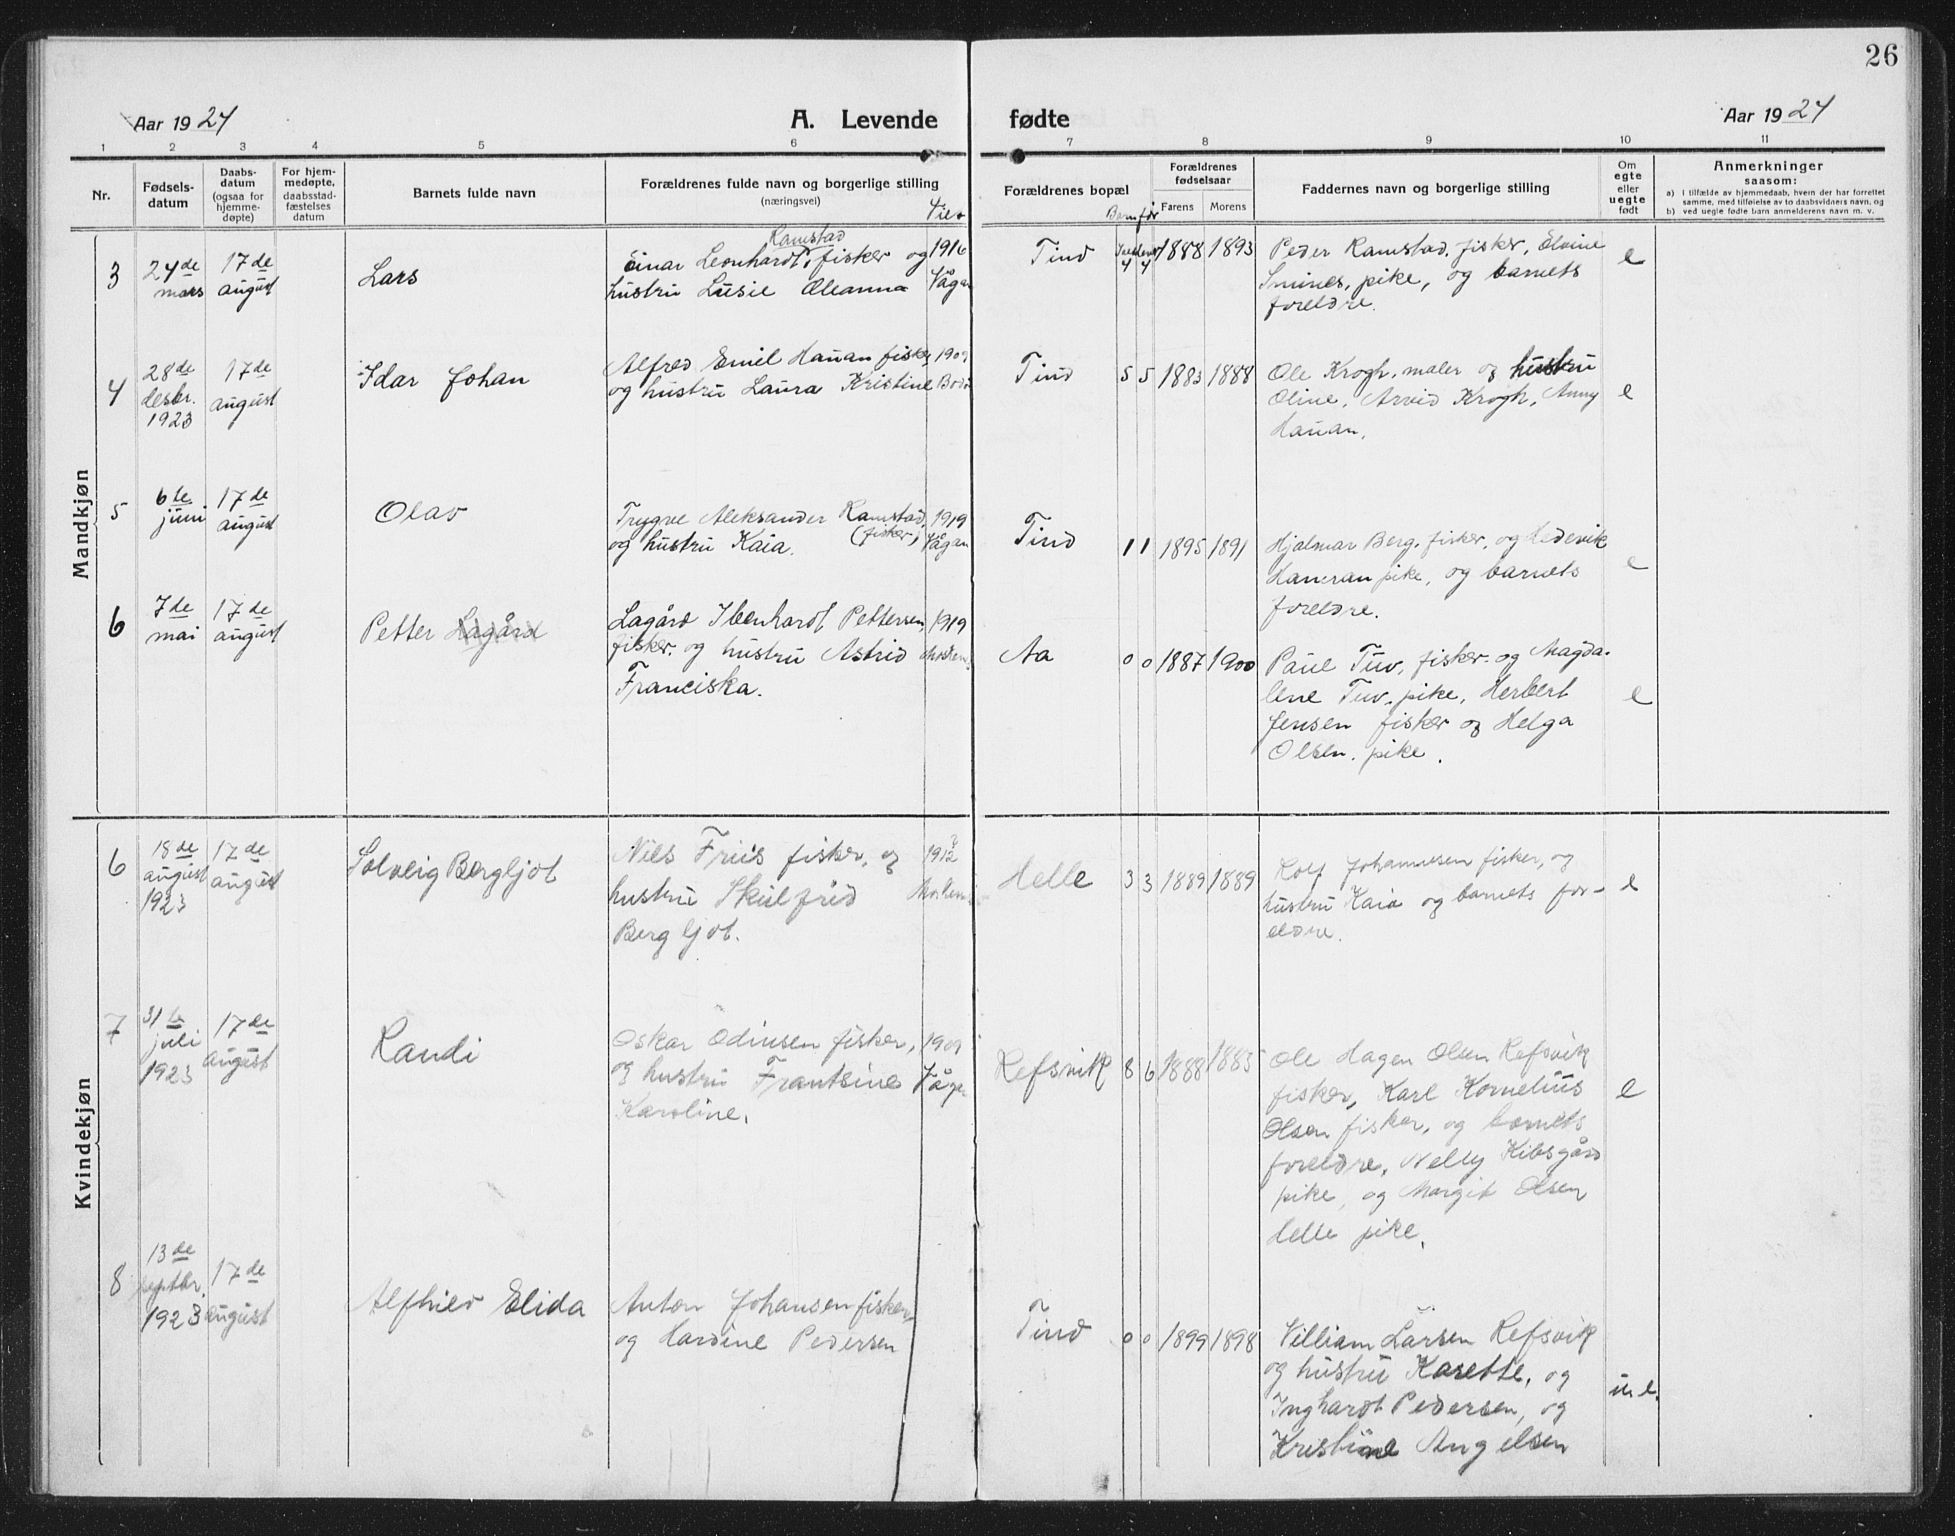 26
Aar 1924
A. Levende
fødte
Aar 1924
1 2 3 4 5 6 7 8 9 10 11
Nr.
Fødsels-
datum
Daabs-
datum
(ogsaa for
hjemme-
døpte)
For hjem-
medøpte,
daabsstad-
fæstelses
datum
Barnets fulde navn
Forældrenes fulde navn og borgerlige stilling
(næringsvei)
Forældrenes bopæl
Forældrenes
fødselsaar
Farens Morens
Faddernes navn og borgerlige stilling
Om
egte
eller
uegte
født
Anmerkninger
saasom:
a) I tilfælde av hjemmedaab, hvem der har forrettet
samme, med tilføielse av to daabsvidners navn, og
b) ved uegte fødte barn anmelderens navn m. v.
Mandkjøn
3
24de
mars
17de
august
Lars
Ramstad
Einar Leonhardt, fisker og
hustru Lusie Oleanna
1916
Vågan
Tind
4 4
1888 1893
Peder Ramstad, fisker, Elvine
Smines, pike, og barnets
foreldre.
e
4
28de
desbr.
1923
17de
august
Idar Johan
Alfred Emil Hauan fisker
og hustru Laura Kristine
1909
Bodø
Tind
5 5
1883 1888
Ole Krogh, maler og hustru
Oline, Arvid Krogh, Anny
Hauan.
e
5
6te
juni
17de
august
Olav
Trygve Aleksander Ramstad,
(fisker)
og hustru Kaia.
1919
Vågan
Tind
1 1
1895 1891
Hjalmar Berg, fisker, og Hedevik
pike, og barnets
foreldre.
e
6
7de
mai
17de
august
Petter Lagård
Lagård Ibenhardt Pettersen,
fisker og hustru Astrid
Franciska.
1919
Aa
0 0
1887 1900
Paul Tuv, fisker og Magda-
lene Tuv, pike, Herbert
Jensen fisker og Helga
Olsen, pike.
e
Kvindekjøn
6
18de
august
1923
17de
august
Solveig Bergljot
Nils Friis fisker, og
hustru Skulfrid
Bergljot.
1912
Helle
3 3
1889 1889
Rolf Johannesen fisker, og
hustru Kaia og barnets for-
eldre.
e
7
31te
juli
1923
17de
august
Randi
Oskar Odinsen fisker,
og hustru Frantsine
Karoline.
1909
Refsvik
8 6
1888 1885
Ole Hagen Olsen Refsvik
fisker, Karl Kornelius
Olsen fisker, og barnets
foreldre, Nelly Kibsgård
pike, og Margit Olsen
Helle pike.
e
8
13de
septbr.
1923
17de
august
Alfhild Elida
Anton Johansen fisker,
og Hardine Pedersen
Tind
0 0
1899 1898
Villiam Larsen Refsvik
og hustru Karette, og
Inghardt Pedersen, og
Kristine Angelsen
u.e.